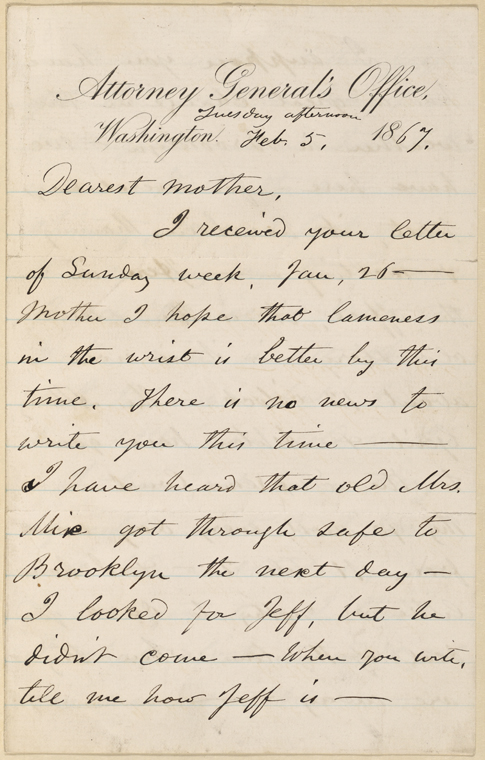 Attorney General's Office,
Tuesday afternoon
Washington. Feb. 5, 1867.
Dearest mother,
I received your letter
of Sunday week, Jan, 26—
Mother I hope that lameness
in the wrist is better by this
time. There is no news to
write you this time —
I have heard that old Mrs.
Mix got through safe to
Brooklyn the next day —
I looked for Jeff, but he
didn't come — When you write,
tell me how Jeff is —